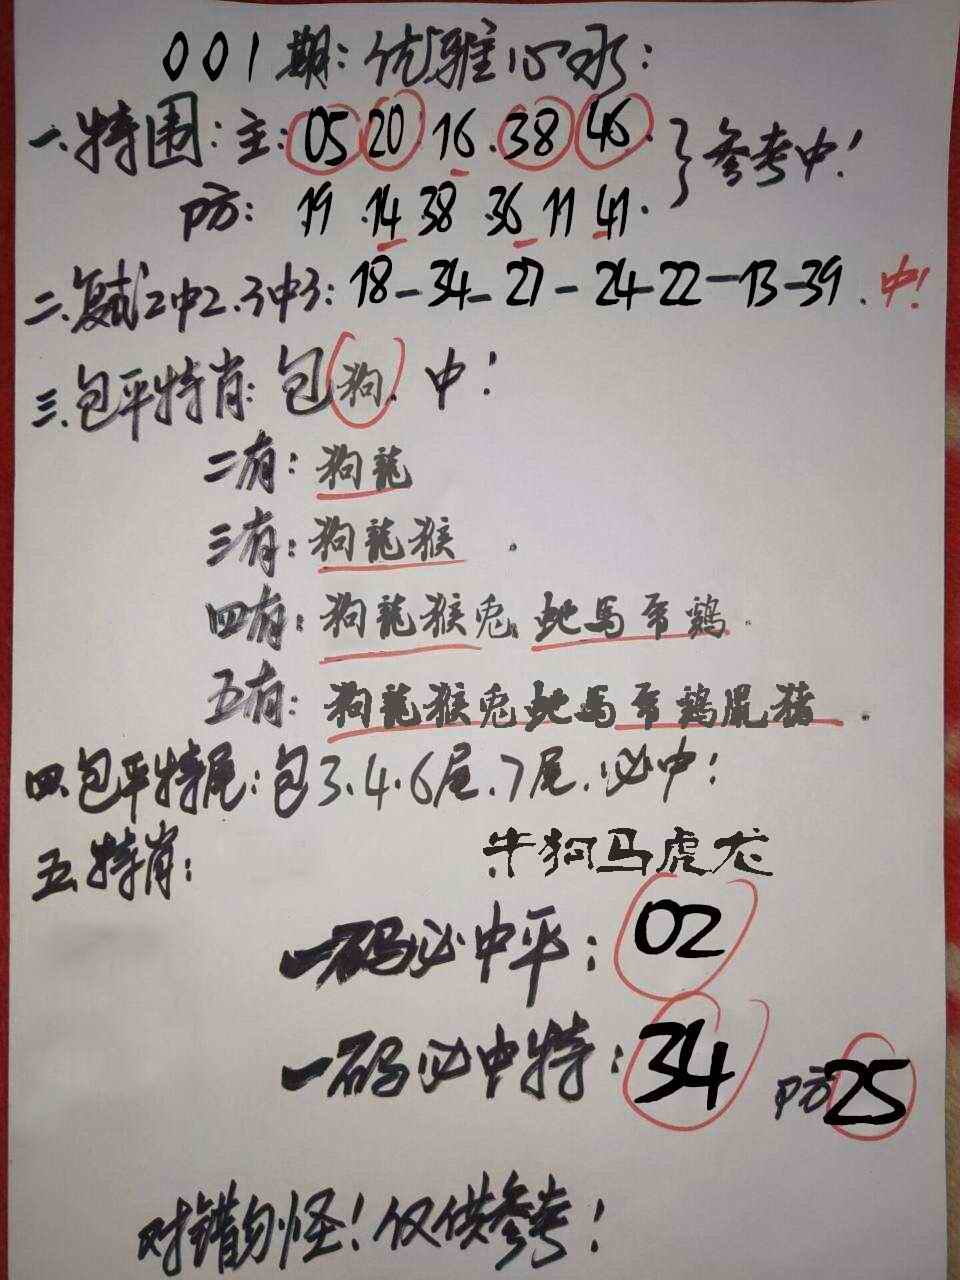 001期:优雅心水:
一.特围:主:05 20 16.38 46.}参考中!
防: 19.14 38.36 11 41.
二.复试2中2.3中3:18-34-27-24-22-13-39.中!
三.包平特肖:包狗.中!
二有:狗龍
三有:狗龍猴.
四有:狗龍猴兎蛇馬 鷄.
五有:狗龍猴兎蛇馬 鷄鼠猪.
四.包平特尾:包3.4.6尾.7尾.必中!
五.特肖: 牛狗马虎龙
一码必中平:02
一码必中特:34 防25
对错勿怪!仅供参考!